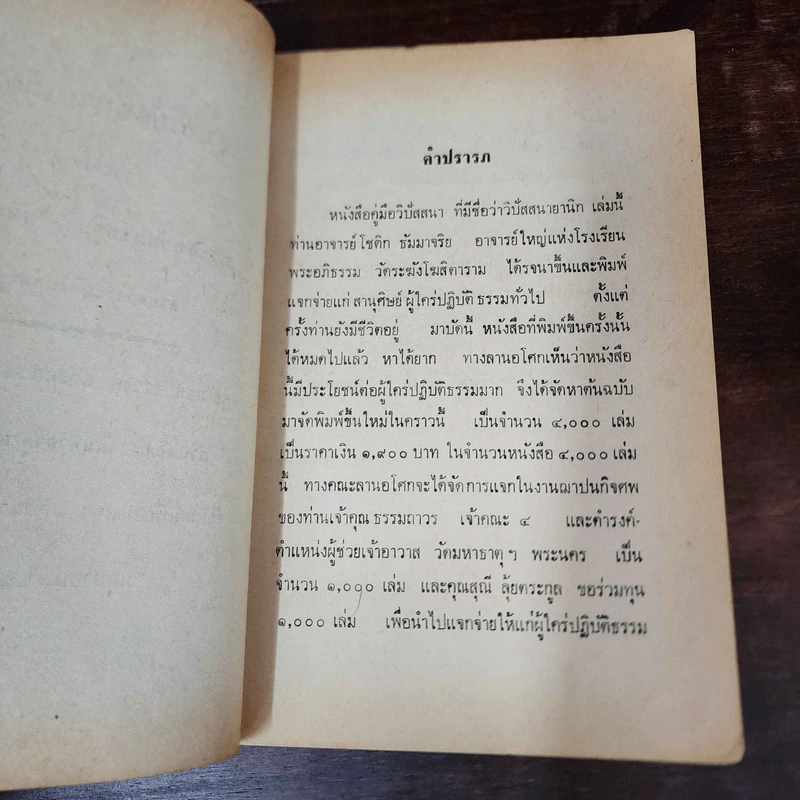 คำปรารภ
หนังสือคู่มือวิปัสสนา ที่มีชื่อว่าวิปัสสนายานิก เล่มนี้
ท่านอาจารย์โชติก ธัมมาจริย อาจารย์ใหญ่แห่งโรงเรียน
พระอภิธรรม วัดระฆังโฆสิตาราม ได้รจนาขึ้นและพิมพ์
แจกจ่ายแก่ สานุศิษย์ ผู้ใคร่ปฏิบัติ ธรรมทั่วไป ตั้งแต่
ครั้งท่านยังมีชีวิตอยู่ มาบัดนี้ หนังสือที่พิมพ์ขึ้นครั้งนั้น
ได้หมดไปแล้ว หาได้ยาก ทางลานอโศกเห็นว่าหนังสือ
นี้มีประโยชน์ต่อผู้ใคร่ปฏิบัติธรรมมาก จึงได้จัดหาต้นฉบับ
มาจัดพิมพ์ขึ้นใหม่ในคราวนี้ เป็นจำนวน ๔,๐๐๐ เล่ม
เป็นราคาเงิน ๑,๙๐๐ บาท ในจำนวนหนังสือ ๔,๐๐๐ เล่ม
นี้ ทางคณะลานอโศกจะได้จัดการแจกในงานฌาปนกิจศพ
ของท่านเจ้าคุณ ธรรมถาวร เจ้าคณะ ๔ และดำรงค์-
ตำแหน่งผู้ช่วยเจ้าอาวาส วัดมหาธาตุฯ พระนคร เป็น
จำนวน ๑,๐๐๐ เล่ม และคุณสุณี ลุ้ยตระกูล ขอร่วมทุน
๑,๐๐๐ เล่ม เพื่อนำไปแจกจ่ายให้แก่ผู้ใคร่ปฏิบัติธรรม